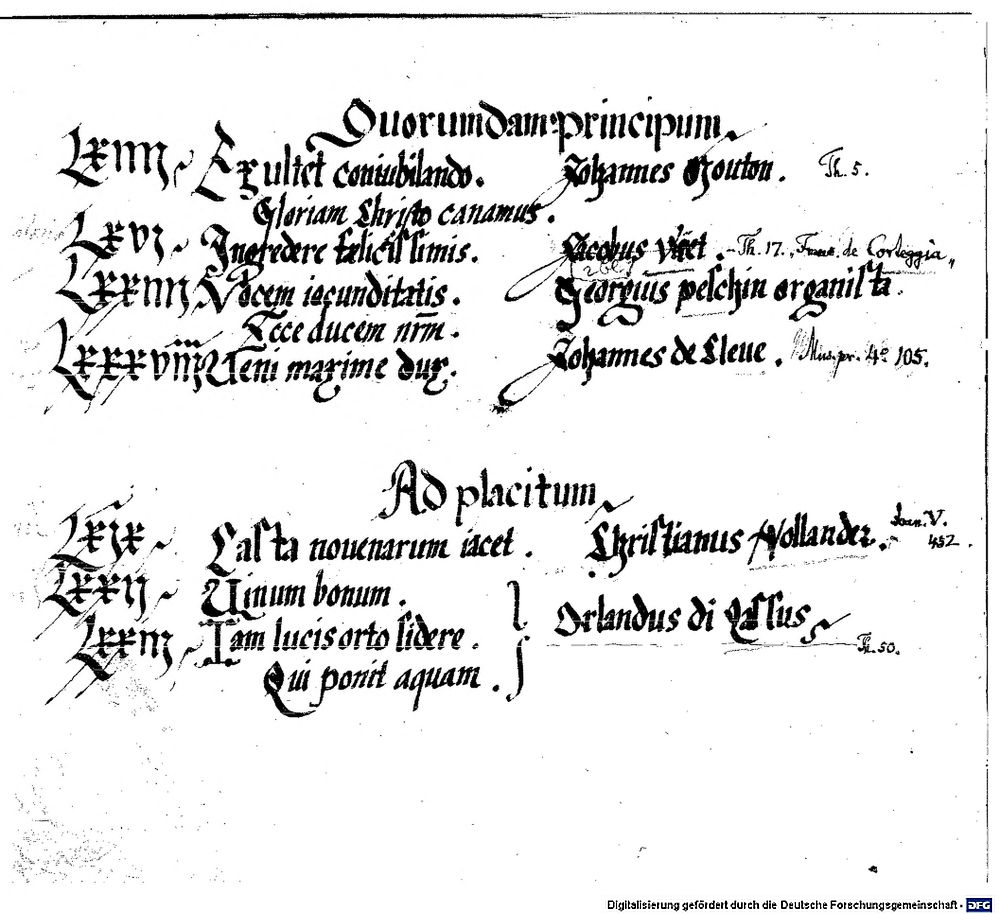 Quorumdam principum
Lxiiij Exultet coniubilando. Johannes Mouton. Th. 5.
Gloriam Christo canamus.
Lxvj Ingredere felicissimis. Jacobus Vaet. Th. 17. Franc. de Corteggia
Lxxiiij Vocem iocunditatis. Georgius peschin organista.
Ecce ducem nrm̄.
Lxxxviij Ueni maxime dux. Johannes de Cleue. Mus. pr. 4º 105.
Ad placitum
Lxix Casta nouenarum iacet. Christianus Hollander. Joan. V.
452.
Lxxij Uinum bonum.
Orlandus di Lassus
Lxxiij Iam lucis orto sidere. Th. 50.
Qui ponit aquam.
Digitalisierung gefördert durch die Deutsche Forschungsgemeinschaft - DFG